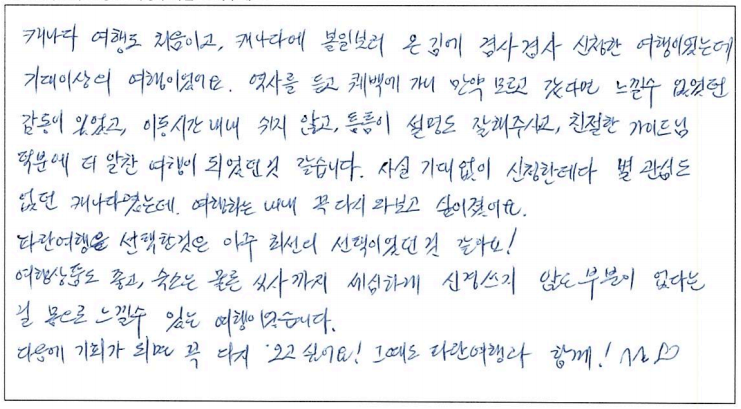 캐나다 여행도 처음이고, 캐나다에 볼일보러 온 김에 겸사겸사 신청한 여행이었는데
기대이상의 여행이었어요. 역사를 듣고 퀘백에 가니 만약 모르고 갔다면 느낄수 없었던
감동이 있었고, 이동시간 내내 쉬지 않고, 틈틈이 설명도 잘해주시고, 친절한 가이드님
덕분에 더 알찬 여행이 되었던것 같습니다. 사실 기대없이 신청한데다 별 관심도
없던 캐나다였는데. 여행하는 내내 꼭 다시 와보고 싶어졌어요.
파란여행을 선택한것은 아주 최선의 선택이었던 것 같아요!
여행상품도 좋고, 숙소는 물론 식사까지 세심하게 신경쓰지 않는 부분이 없다는
걸 몸으로 느낄수 있는 여행이었습니다.
다음에 기회가 되면 꼭 다시 오고 싶어요! 그때도 파란여행과 함께! ^^ ♡